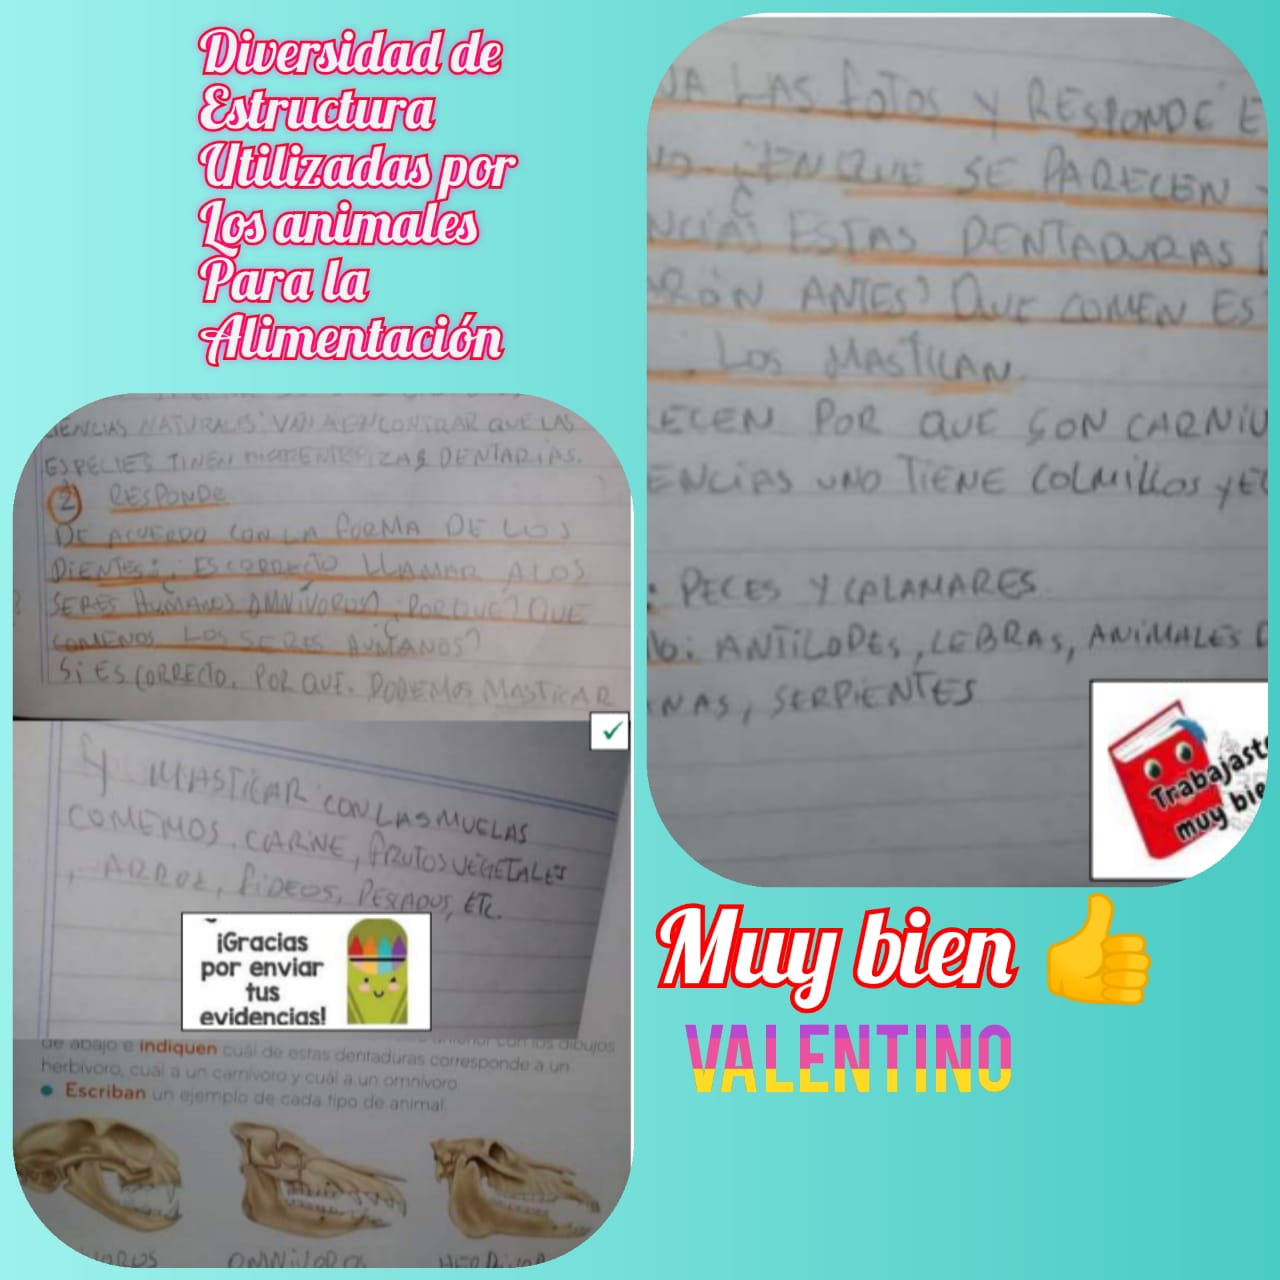 Diversidad de
Estructura
Utilizadas por
Los animales
Para la
Alimentación
CIENCIAS NATURALES: VAN A ENCONTRAR QUE LAS
ESPECIES TINEN PIZAS DENTARIAS.
2 RESPONDE
DE ACUERDO CON LA FORMA DE LOS
DIENTES: ¿ES CORRECTO LLAMAR A LOS
SERES HUMANOS OMNÍVOROS? ¿PORQUE? QUE
COMEMOS LOS SERES HUMANOS?
Si ES CORRECTO. POR QUE. PODEMOS MASTICAR
Y MASTICAR CON LAS MUELAS
COMEMOS. CARNE, FRUTOS VEGETALES
, ARROZ, FiDEOS, PESCADOS, ETC.
¡Gracias
por enviar
tus
evidencias!
de abajo e indiquen cuál de estas dentaduras corresponde a un
herbívoro, cuál a un carnívoro y cuál a un omnívoro.
Escriban un ejemplo de cada tipo de animal.
OMNiVOROS
VA LAS FOTOS Y RESPONDE E
¿EN QUE SE PARECEN Y
NCIAS ESTAS DENTADURAS
RÓN ANTES? QUE COMEN ES
LOS MASTICAN.
ECEN POR QUE SON CARNIV
ENCIAS UNO TIENE COLMILLOS Y EL
: PECES Y CALAMARES.
: ANTÍLOPES, LEBRAS, ANIMALES D
NAS, SERPIENTES
Trabajaste
muy bie
Muy bien
VALENTINO